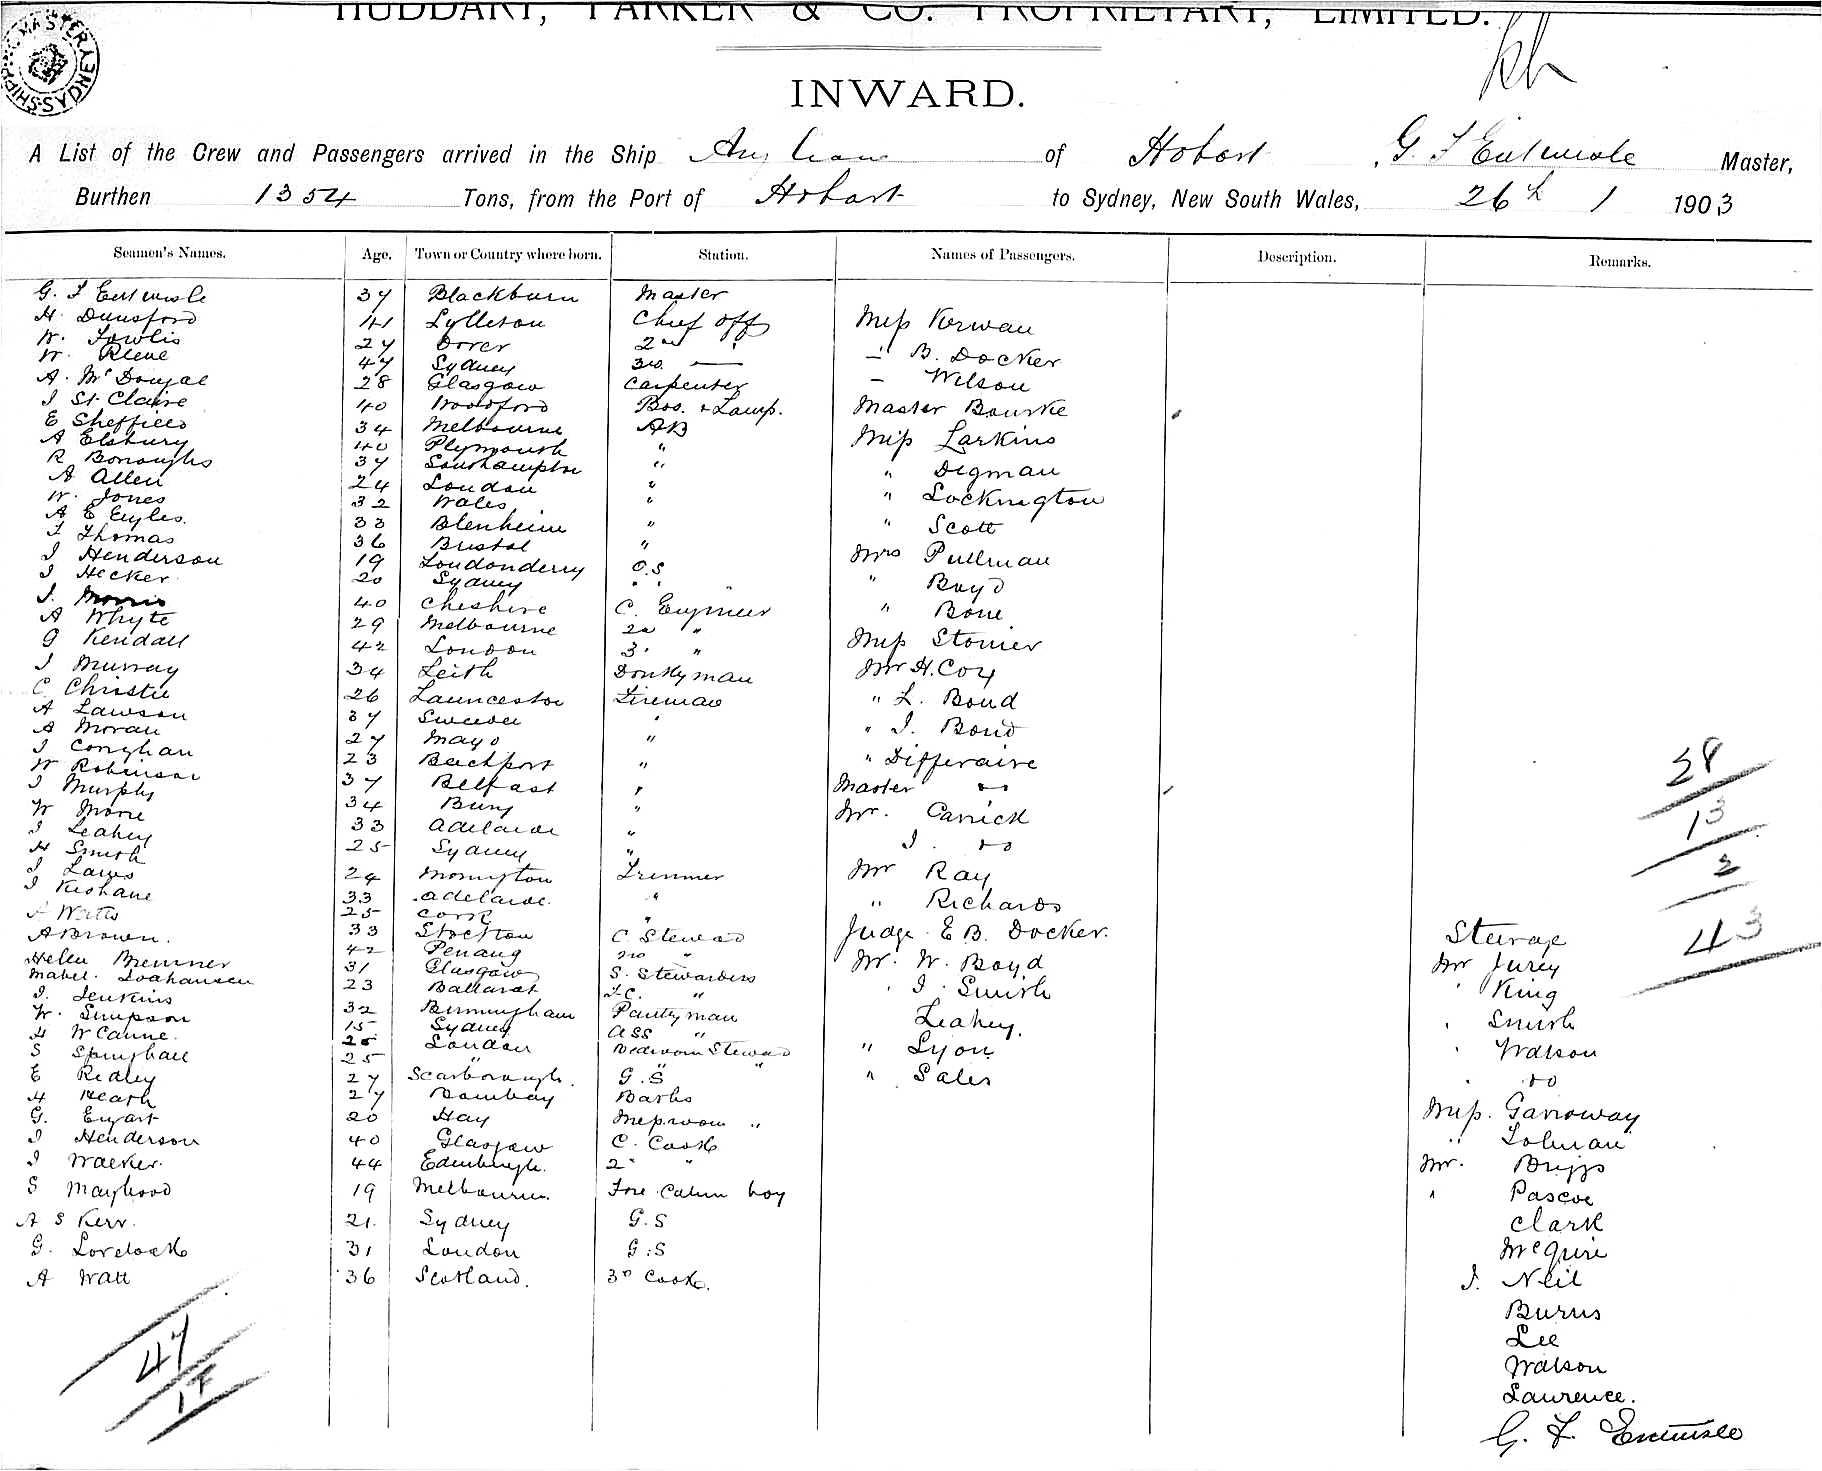 HUDDART, PARKER & CO. PROPRIETARY, LIMITED.
SHIPPING MASTER SYDNEY
INWARD.
A List of the Crew and Passengers arrived in the Ship of Hobart G. F Entwisle Master,
Burthen 1354 Tons, from the Port of Hobart to Sydney, New South Wales, 26th 1 1903
Seamen's Names. Age. Town or Country where born. Station. Names of Passengers. Description. Remarks.
G. F Entwisle 37 Blackburn Master
H. Dunsford 41 Lyttleton Chief Off
W. Fowlis 27 Dover 2nd "
W. Reeve 47 Sydney 3rd. —
A. McDougal 28 Glasgow Carpenter
J St. Claire 40 Woodford Bos. & Lamp.
E Sheffield 34 Melbourne AB
A Elsbury 40 Plymouth "
R Boroughs 37 Southampton "
A Allen 24 London "
W. Jones 32 Wales "
A E Eyles. 33 Blenheim "
F Thomas 36 Bristol "
J Henderson 19 Londonderry O.S
J Hecker 20 Sydney " "
J. Morris 40 Cheshire C. Engineer
A Whyte 29 Melbourne 2nd "
G Kendall 42 London 3. "
J Murray 34 Leith Donkyman
C Christie 26 Launceston Fireman
A Lawson 37 Sweden "
A Moran 27 Mayo "
J Conghan 23 Beachport "
W Robinson 37 Belfast "
J Murphy 34 Bury "
W More 33 Adelaide "
J Leahey 25 Sydney "
H Smith
J Laws 24 Mornington Trimmer
J Keohane 33 Adelaide. "
A Watts 25 Cork "
A Brown. 33 Stockton C Steward
Helen Bremner 42 Penang 2nd "
Mabel. 31 Glasgow S. Stewardess
J. Jenkins 23 Ballarat F.C. "
W. Simpson 32 Birmingham Pantryman
H W Canne. 15 Sydney ass "
S Springhall 25 London Bedroom Steward
E Ridley 25 " " "
H Heath 27 Scarborough. G.S
G. Ewart 27 Bombay Baths
J Henderson 20 Hay Messroom "
J Walker. 40 Glasgow C. Cook
44 Edinburgh. 2nd "
S Maywood 19 Melbourne. Fore Cabin boy
A S Kerr. 21. Sydney G.S
G. Lovelock 31 London G.S
A Watt 36 Scotland. 3rd Cook.
47
17
Miss Kerwan
" B. Docker
" Wilson
Master Bourke
Miss Larkins
" Digman
" Lockington
" Scott
Mrs Pullman
" Boyd
" Bone
Miss Stonier
Mr H. Cox
" L. Bond
" J. Bond
" Differaire
Master do
Mr. Carrick
J. do
Mr Ray
" Richards
Judge E B. Docker.
Mr. W. Boyd
" J. Smith
Leahey.
" Lyon
" Sales
28
13
2
43
Steerage
Mr Jurey
" King
" Smith
" Watson
" do
Miss. Garroway
" Tolman
Mr. Briggs
" Pascoe
Clark
McGuire
J. Neil
Burns
Lee
Watson
Laurence.
G. F. Entwisle